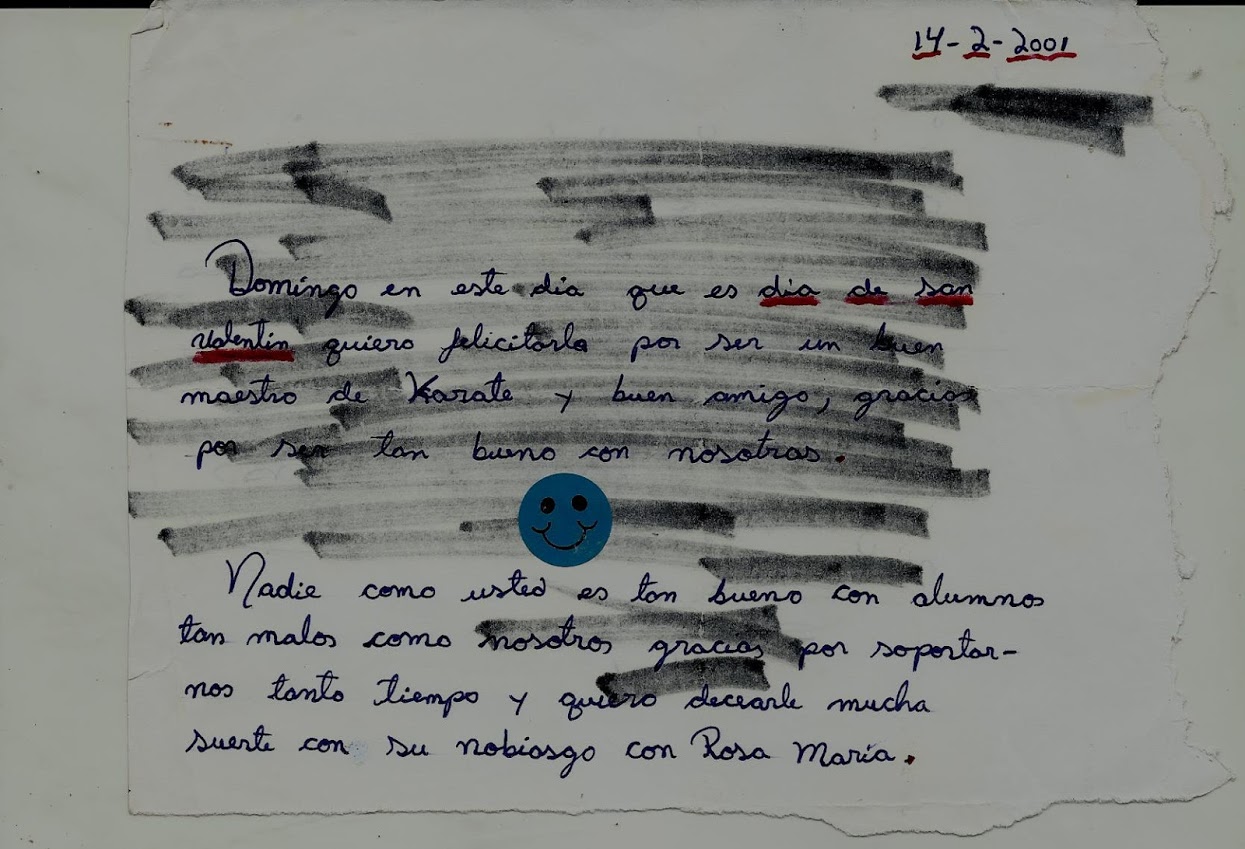 14-2-2001
Domingo en este dia que es dia de san
valentin quiero felicitarla por ser un buen
maestro de Karate y buen amigo, gracias
por ser tan bueno con nosotras.
Nadie como usted es tan bueno con alumnos
tan malos como nosotros gracias por soportar-
nos tanto tiempo y quiero decearle mucha
suerte con su nobiasgo con Rosa María.